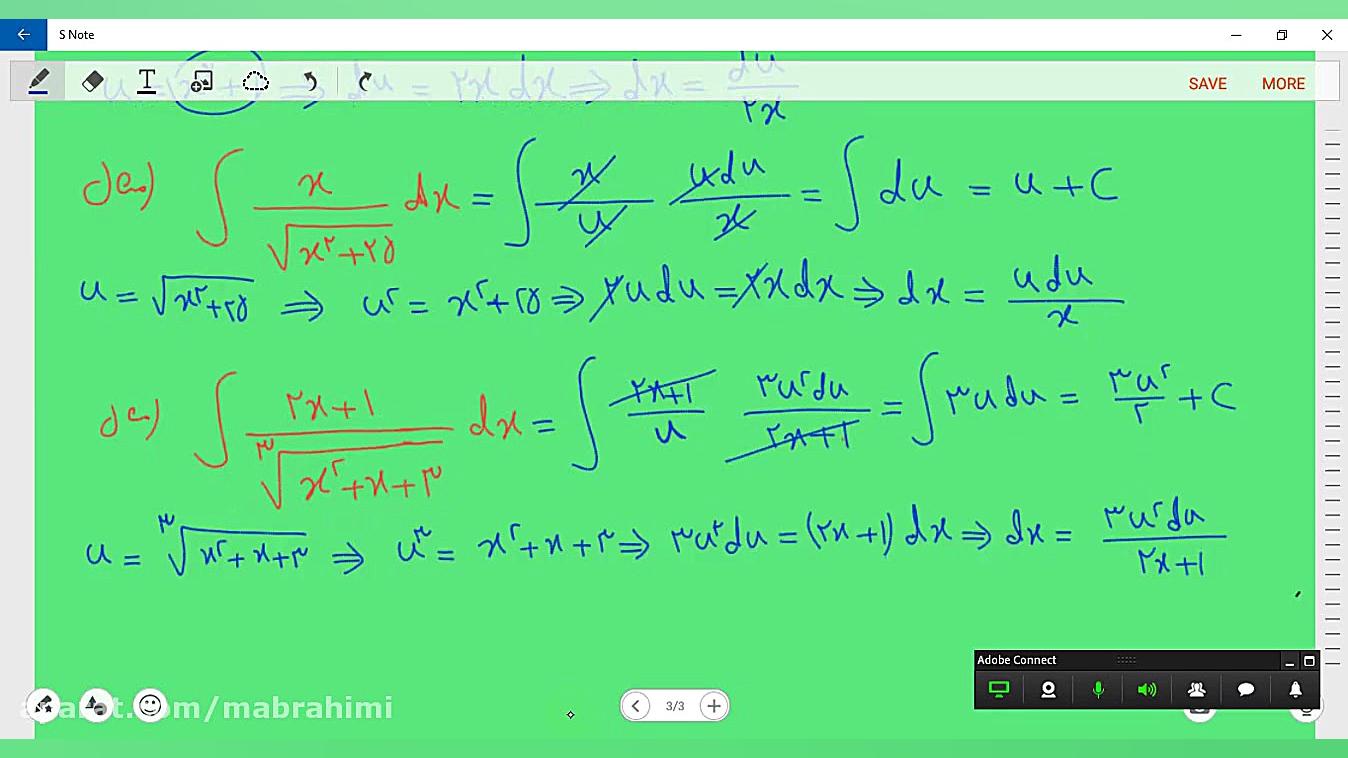 S Note
SAVE MORE
⇒ du = ۲x dx ⇒ dx = du/۲x
مثال) ∫ x/√(x^۲+۲۵) dx = ∫ x/u · u du/x = ∫ du = u + C
u = √(x^۲+۲۵) ⇒ u^۲ = x^۲+۲۵ ⇒ ۲u du = ۲x dx ⇒ dx = u du/x
مثال) ∫ (۲x+۱)/∛(x^۲+x+۳) dx = ∫ (۲x+۱)/u · ۳u^۲ du/(۲x+۱) = ∫ ۳u du = ۳u^۲/۲ + C
u = ∛(x^۲+x+۳) ⇒ u^۳ = x^۲+x+۳ ⇒ ۳u^۲ du = (۲x+۱) dx ⇒ dx = ۳u^۲ du/(۲x+۱)
Adobe Connect
aparat.com/mabrahimi
3/3